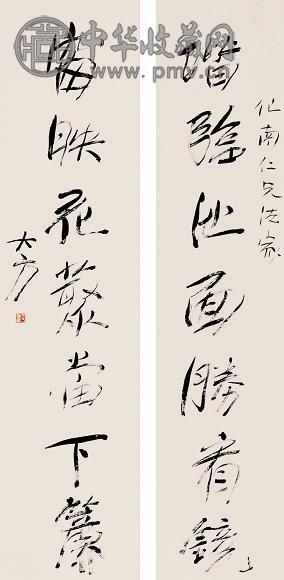 中华收藏网
www.pmv.cn
階臨池面勝看鏡
南仁兄法家
正
映花叢當下簾
大方